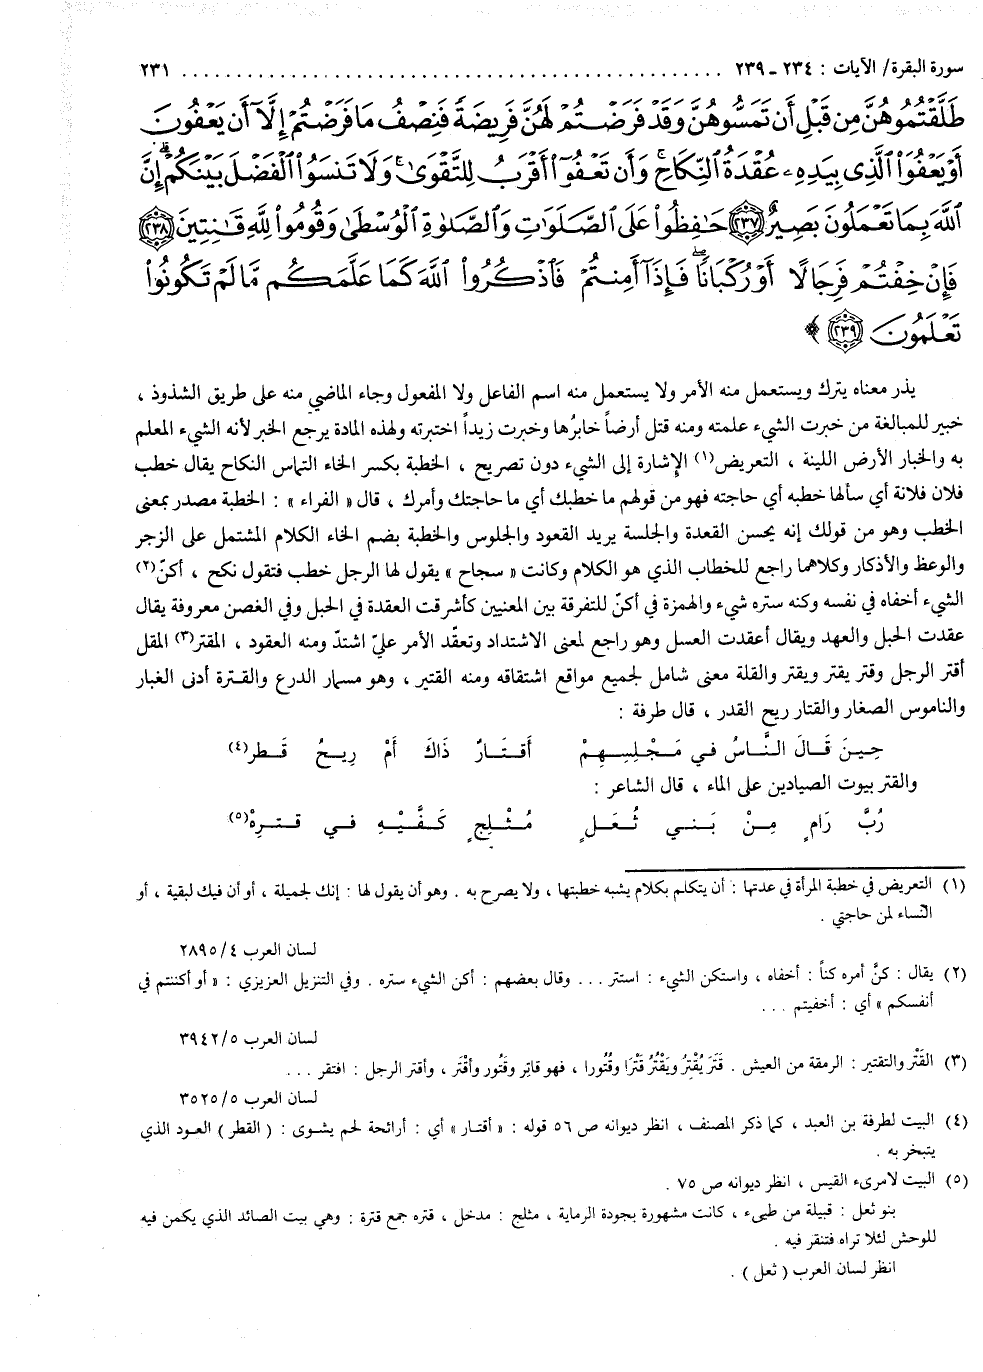 سورة البقرة/ الآيات : ٢٣٤ ـ ٢٣٩ ................................................ ٢٣١
طَلَّقْتُمُوهُنَّ مِن قَبْلِ أَن تَمَسُّوهُنَّ وَقَدْ فَرَضْتُمْ لَهُنَّ فَرِيضَةً فَنِصْفُ مَا فَرَضْتُمْ إِلَّآ أَن يَعْفُونَ
أَوْ يَعْفُوَا۟ ٱلَّذِى بِيَدِهِۦ عُقْدَةُ ٱلنِّكَاحِ ۚ وَأَن تَعْفُوٓا۟ أَقْرَبُ لِلتَّقْوَىٰ ۚ وَلَا تَنسَوُا۟ ٱلْفَضْلَ بَيْنَكُمْ ۚ إِنَّ
ٱللَّهَ بِمَا تَعْمَلُونَ بَصِيرٌ ﴿٢٣٧﴾ حَٰفِظُوا۟ عَلَى ٱلصَّلَوَٰتِ وَٱلصَّلَوٰةِ ٱلْوُسْطَىٰ وَقُومُوا۟ لِلَّهِ قَٰنِتِينَ ﴿٢٣٨﴾
فَإِنْ خِفْتُمْ فَرِجَالًا أَوْ رُكْبَانًا ۖ فَإِذَآ أَمِنتُمْ فَٱذْكُرُوا۟ ٱللَّهَ كَمَا عَلَّمَكُم مَّا لَمْ تَكُونُوا۟
تَعْلَمُونَ ﴿٢٣٩﴾ ﴾
يذر معناه يترك ويستعمل منه الأمر ولا يستعمل منه اسم الفاعل ولا المفعول وجاء الماضي منه على طريق الشذوذ ،
خبير للمبالغة من خبرت الشيء علمته ومنه قتل أرضاً خابرُها وخبرت زيداً اختبرته ولهذه المادة يرجع الخبر لأنه الشيء المعلم
به والخبار الأرض اللينة ، التعريض(١) الإشارة إلى الشيء دون تصريح ، الخطبة بكسر الخاء التماس النكاح يقال خطب
فلان فلانة أي سألها خطبه أي حاجته فهو من قولهم ما خطبك أي ما حاجتك وأمرك ، قال « الفراء » : الخطبة مصدر بمعنى
الخطب وهو من قولك إنه يحسن القعدة والجلسة يريد القعود والجلوس والخطبة بضم الخاء الكلام المشتمل على الزجر
والوعظ والأذكار وكلاهما راجع للخطاب الذي هو الكلام وكانت « سجاح » يقول لها الرجل خطب فتقول نكح ، أكنّ(٢)
الشيء أخفاه في نفسه وكنه ستره شيء والهمزة في أكنّ للتفرقة بين المعنيين كأشرقت العقدة في الحبل وفي الغصن معروفة يقال
عقدت الحبل والعهد ويقال أعقدت العسل وهو راجع لمعنى الاشتداد وتعقّد الأمر عليّ اشتدّ ومنه العقود ، المقتر(٣) المقل
أقتر الرجل وقتر يقتر ويقتر والقلة معنى شامل لجميع مواقع اشتقاقه ومنه القتير ، وهو مسمار الدرع والقترة أدنى الغبار
والناموس الصغار والقتار ريح القدر ، قال طرفة :
حِينَ قَالَ النَّاسُ في مَجْلِسِهِمْ أَقتَارٌ ذَاكَ أَمْ رِيحُ قَطر(٤)
والقتر بيوت الصيادين على الماء ، قال الشاعر :
رُبَّ رَامٍ مِنْ بَني ثُعَلٍ مُثْلِجٍ كَفَّيْهِ في قترِهْ(٥)
(١) التعريض في خطبة المرأة في عدتها : أن يتكلم بكلام يشبه خطبتها ، ولا يصرح به . وهو أن يقول لها : إنك لجميلة ، أو أن فيك لبقية ، أو
النساء لمن حاجتي .
لسان العرب ٤/ ٢٨٩٥
(٢) يقال : كنَّ أمره كناً : أخفاه ، واستكن الشيء : استتر ... وقال بعضهم : أكن الشيء ستره . وفي التنزيل العزيزي : « أو أكننتم في
أنفسكم » أي : أخفيتم ...
لسان العرب ٥/ ٣٩٤٢
(٣) القَتْر والتقتير : الرمقة من العيش . قَتَرَ يُقْتِرُ ويَقْتُرُ قَتْرَا وقُتُورا ، فهو قاتِر وقَتُور وأَقْتَر ، وأقتر الرجل : افتقر ...
لسان العرب ٥/ ٣٥٢٥
(٤) البيت لطرفة بن العبد ، كما ذكر المصنف ، انظر ديوانه ص ٥٦ قوله : « أقتار » أي : أرائحة لحم يشوى : ( القطر ) العود الذي
يتبخر به .
(٥) البيت لامرىء القيس ، انظر ديوانه ص ٧٥ .
بنو ثعل : قبيلة من طيىء ، كانت مشهورة بجودة الرماية ، مثلج : مدخل ، قتره جمع قترة : وهي بيت الصائد الذي يكمن فيه
للوحش لئلا تراه فتنقر فيه .
انظر لسان العرب ( ثعل ) .